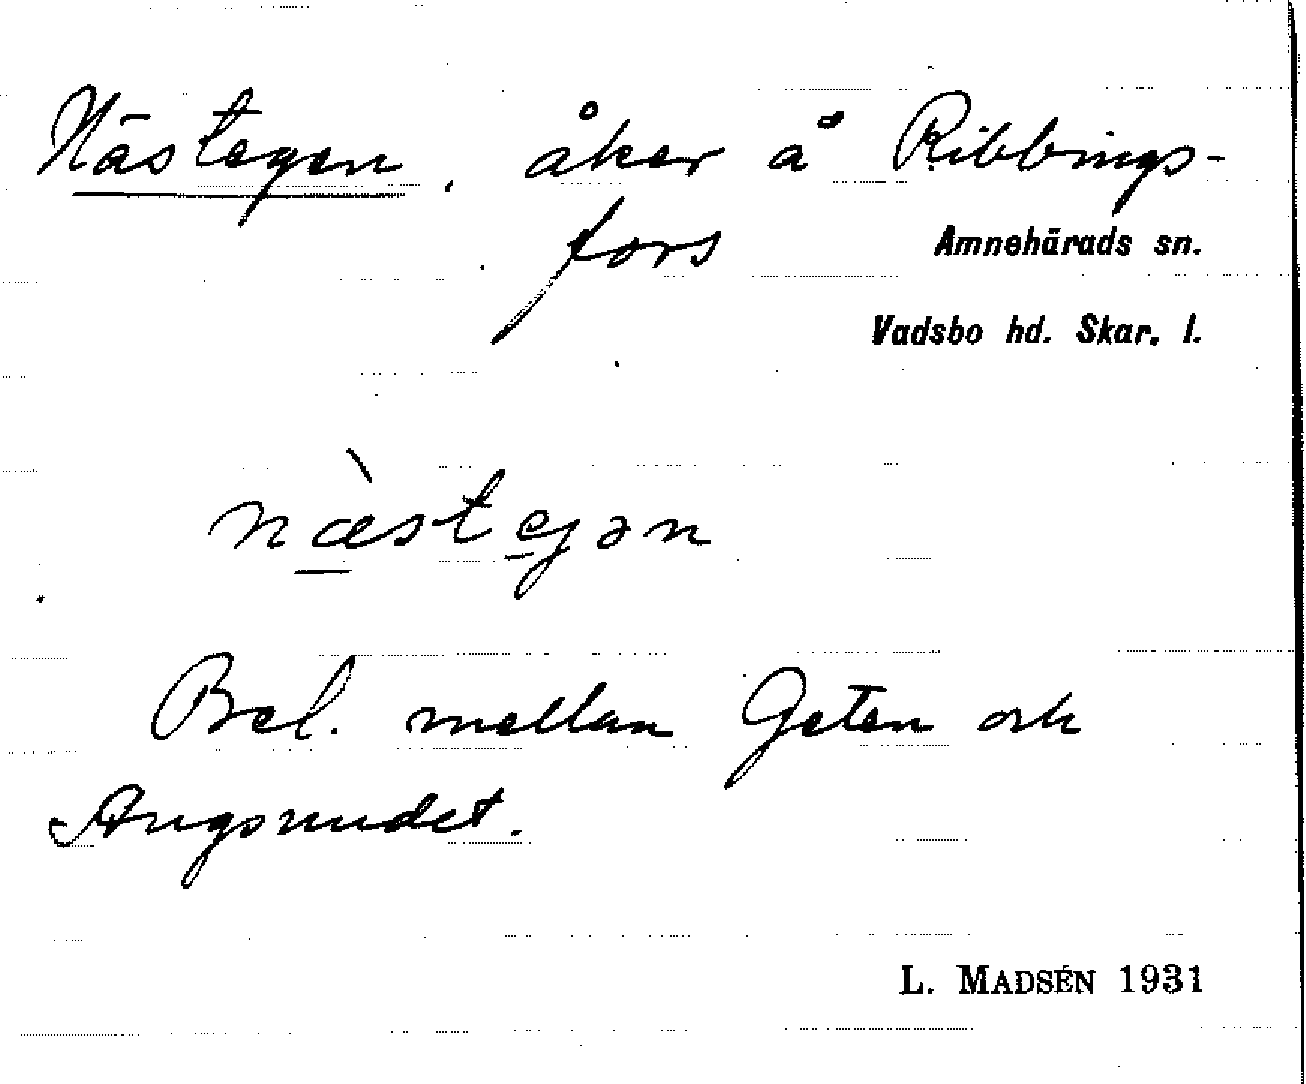 Nästegen, åker å Ribbings-
fors
Amnehärads sn.
Vadsbo hd. Skar. l.
næ̀stegən
Bel. mellan Geten och
Angsmudet.
L. MADSÉN 1931